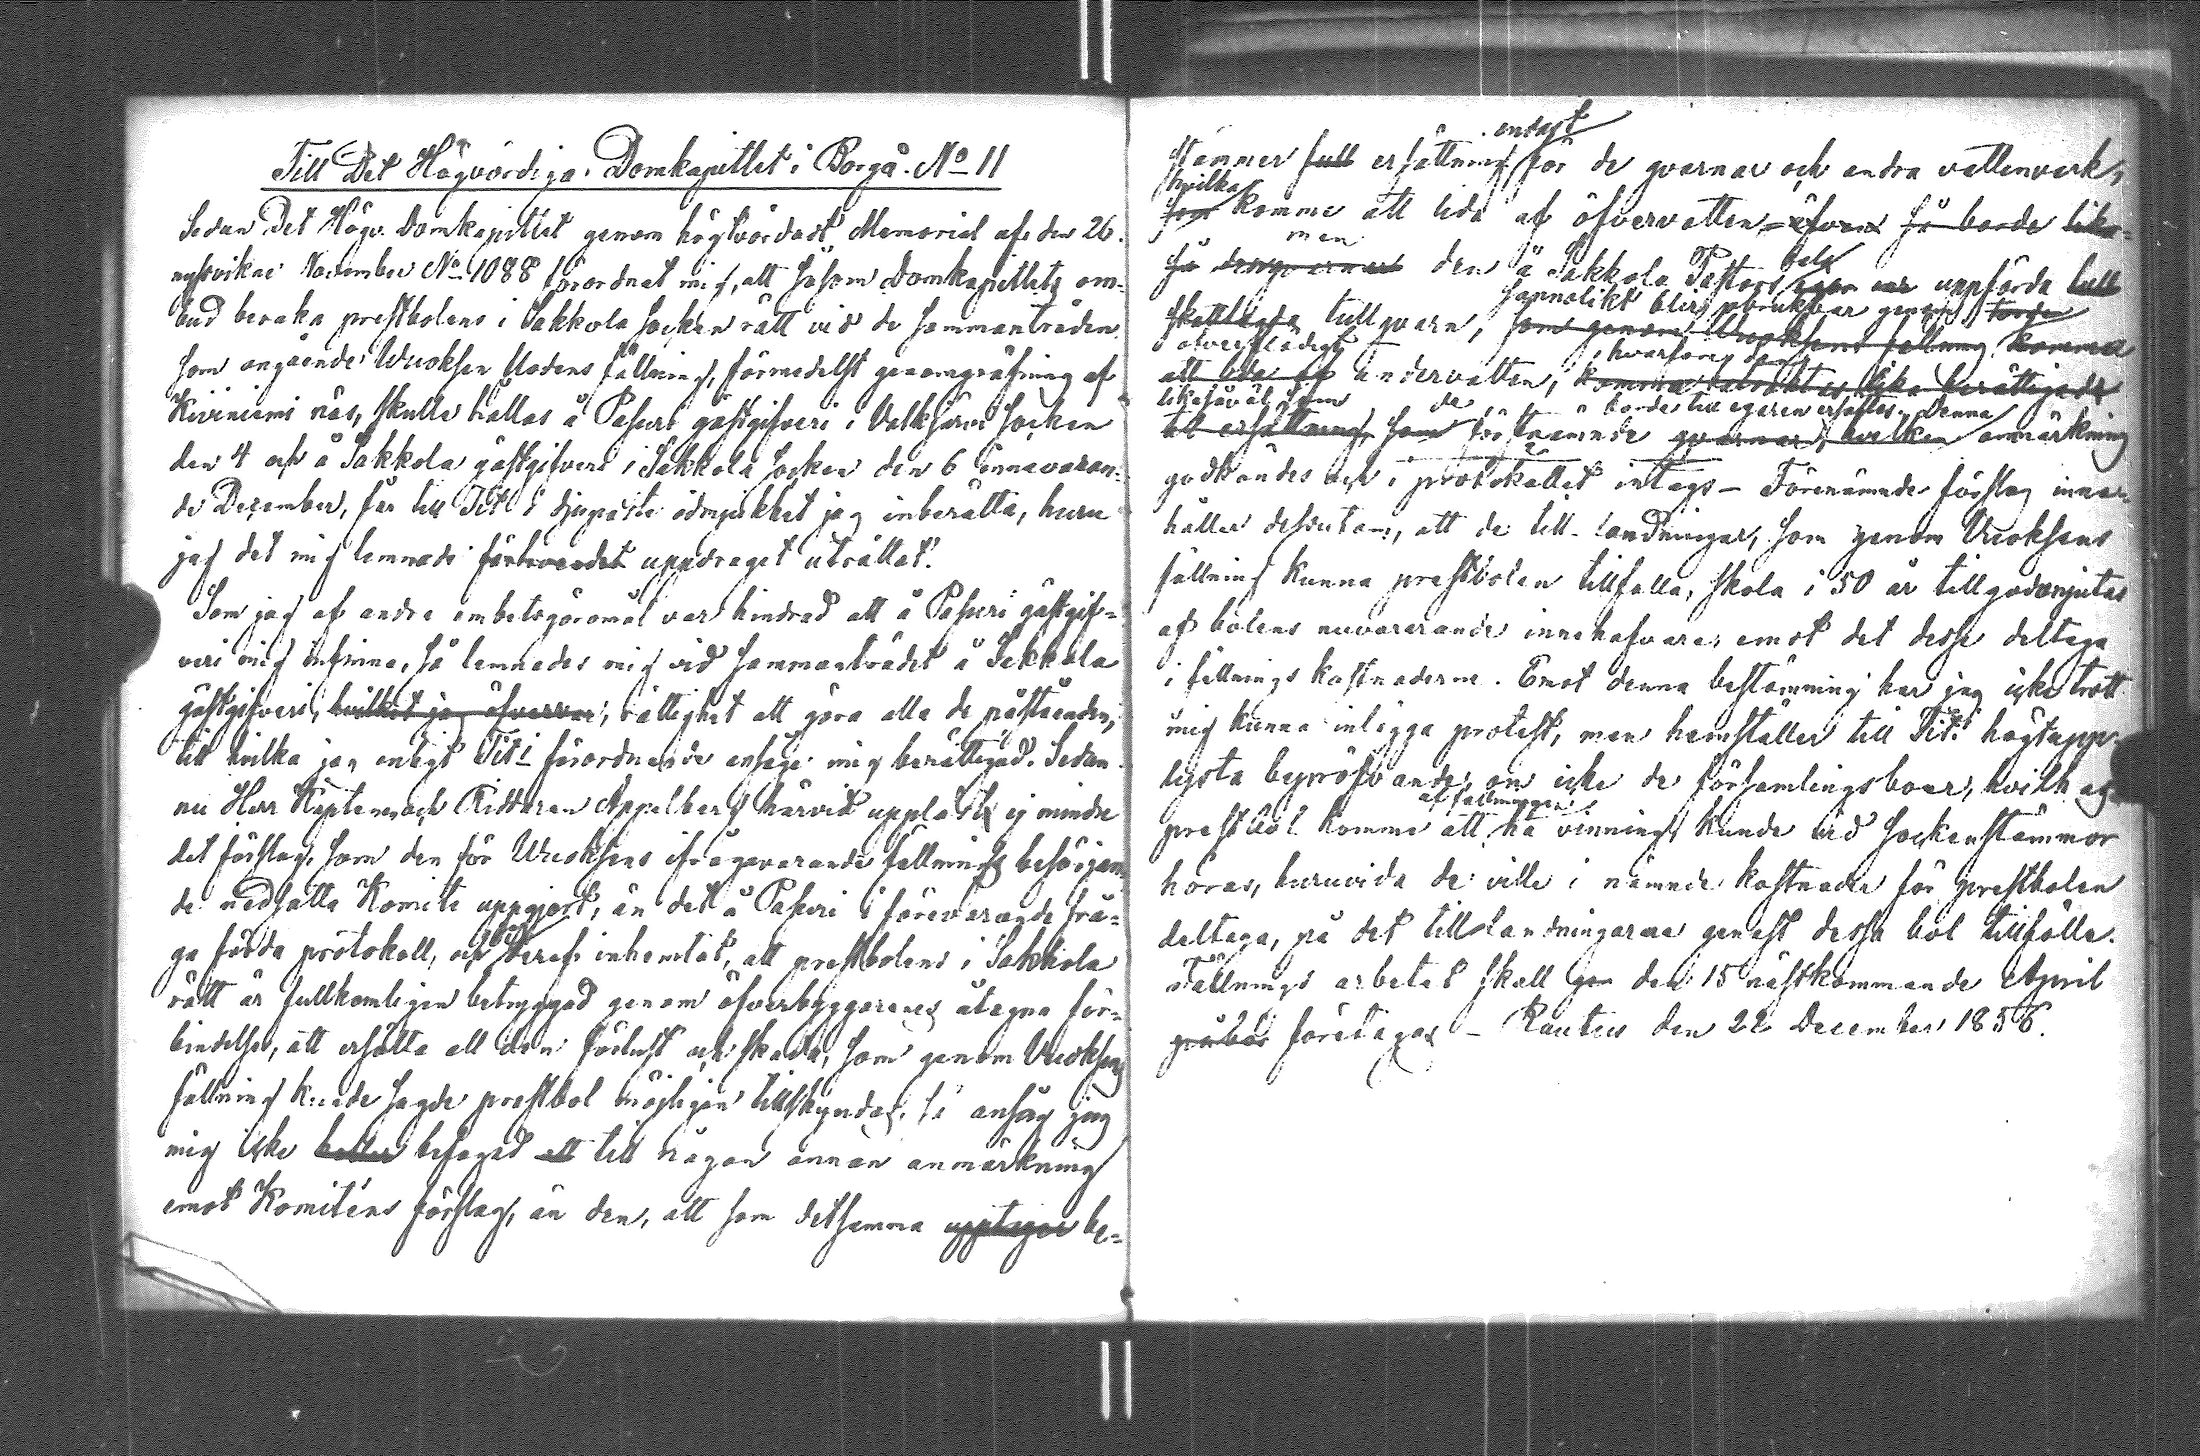 Till Det Högvördiga Domkapitlet i Borgå. No 11
Sedan Det Högv. Domkapitlet genom högtvördadt Memorial af den 26
nystvikne November No 1088 förordnat mig, att såsom Domkapitlets om-
bud bevaka prestbolens i Sakkola socken rätt vid de sammanträden
som angående Wuoksen flodens fällning, förmedelst genomgräfning af
Kiviniemi näs, skulle hållas å Pasuri gästgifveri i Valkjärvi socken
den 4 och å Sakkola gästgifveri i Sakkola socken den 6 innevaran-
de December, får till Tit i djupaste ödmjukhet jag inberätta, huru
jag det mig lemnade förtroendet uppdraget uträttat.
Som jag af andra embetsgöromål var hindrad att å Pasuri gästgif-
veri mig infinna, så lemnades mig vid sammanträdet å Sakkola
gästgifveri, hvilket jag öfvervar, rättighet att göra alla de påståenden,
till hvilka jag enligt Tits förordnande ansåge mig berättigad. Sedan
nu Herr Kaptenen och Riddaren Appelberg härvid uppläst ej mindre
det förslag, som den för Wuoksens ifrågavarande fällnings besörjan-
de nedsatta Komité uppgjort, än det å Pasuri i förevarande frå-
ga förda protokoll, och jag deraf inhemtat, att prestbolens i Sakkola
rätt är fullkomligen betryggad genom öfverbyggarenes åtagna för-
bindelse, att ersätta all den förlust och skada, som genom Wuoksens
fällning kunde sagde prestbol möjligen tillskyndas, så ansåg jag
mig icke heller befogad att till någon annan anmärkning
emot Komiténs förslag, än den, att som detsamma upptager be-
endast
stämmer full ersättning för de qvarnar och andra vattenverk,
hvilka
som komme att lida af öfvervatten, äfven så borde lika-
men
så den å Sakkola Pastors bol uppförda tull
sannolikt blir obrukbar genom
skattlagda tullqvarn, som genom Wuoksens fällning komma
öfverflödigt hvarföre den
att lida af undervatten, komma betraktas lika berättigade
likasåväl som de borde till egaren ersättas. Denna
till ersättning, som förstnämnde qvarnar, hvilken anmärkning
godkändes och i protokollet intogs – Förenämnde förslag inne-
håller dessutom, att de till-landningar, som genom Wuoksens
fällning kunna prestbolen tillfalla, skola i 50 år tillgodonjutas
af bolens nuvarande innehafvare, emot det desse deltaga
i fällnings kostnaderne. Emot denna bestämming har jag icke trott
mig kunna inlägga protest, men hemställer till Tits högtupp-
lysta bepröfvande, om icke de församlingsboar, hvilka
af fällningen
prestbol komme att ha vinning, kunde vid sockenstämmor
höras, huruvida de ville i nämnde kostnader för prestbolen
deltaga, på det tillandningarne genast dessa bol tillfölle.
Fällnings arbetet skall den 15 nästkommande April
företagas – Rautus den 22 December 1856.